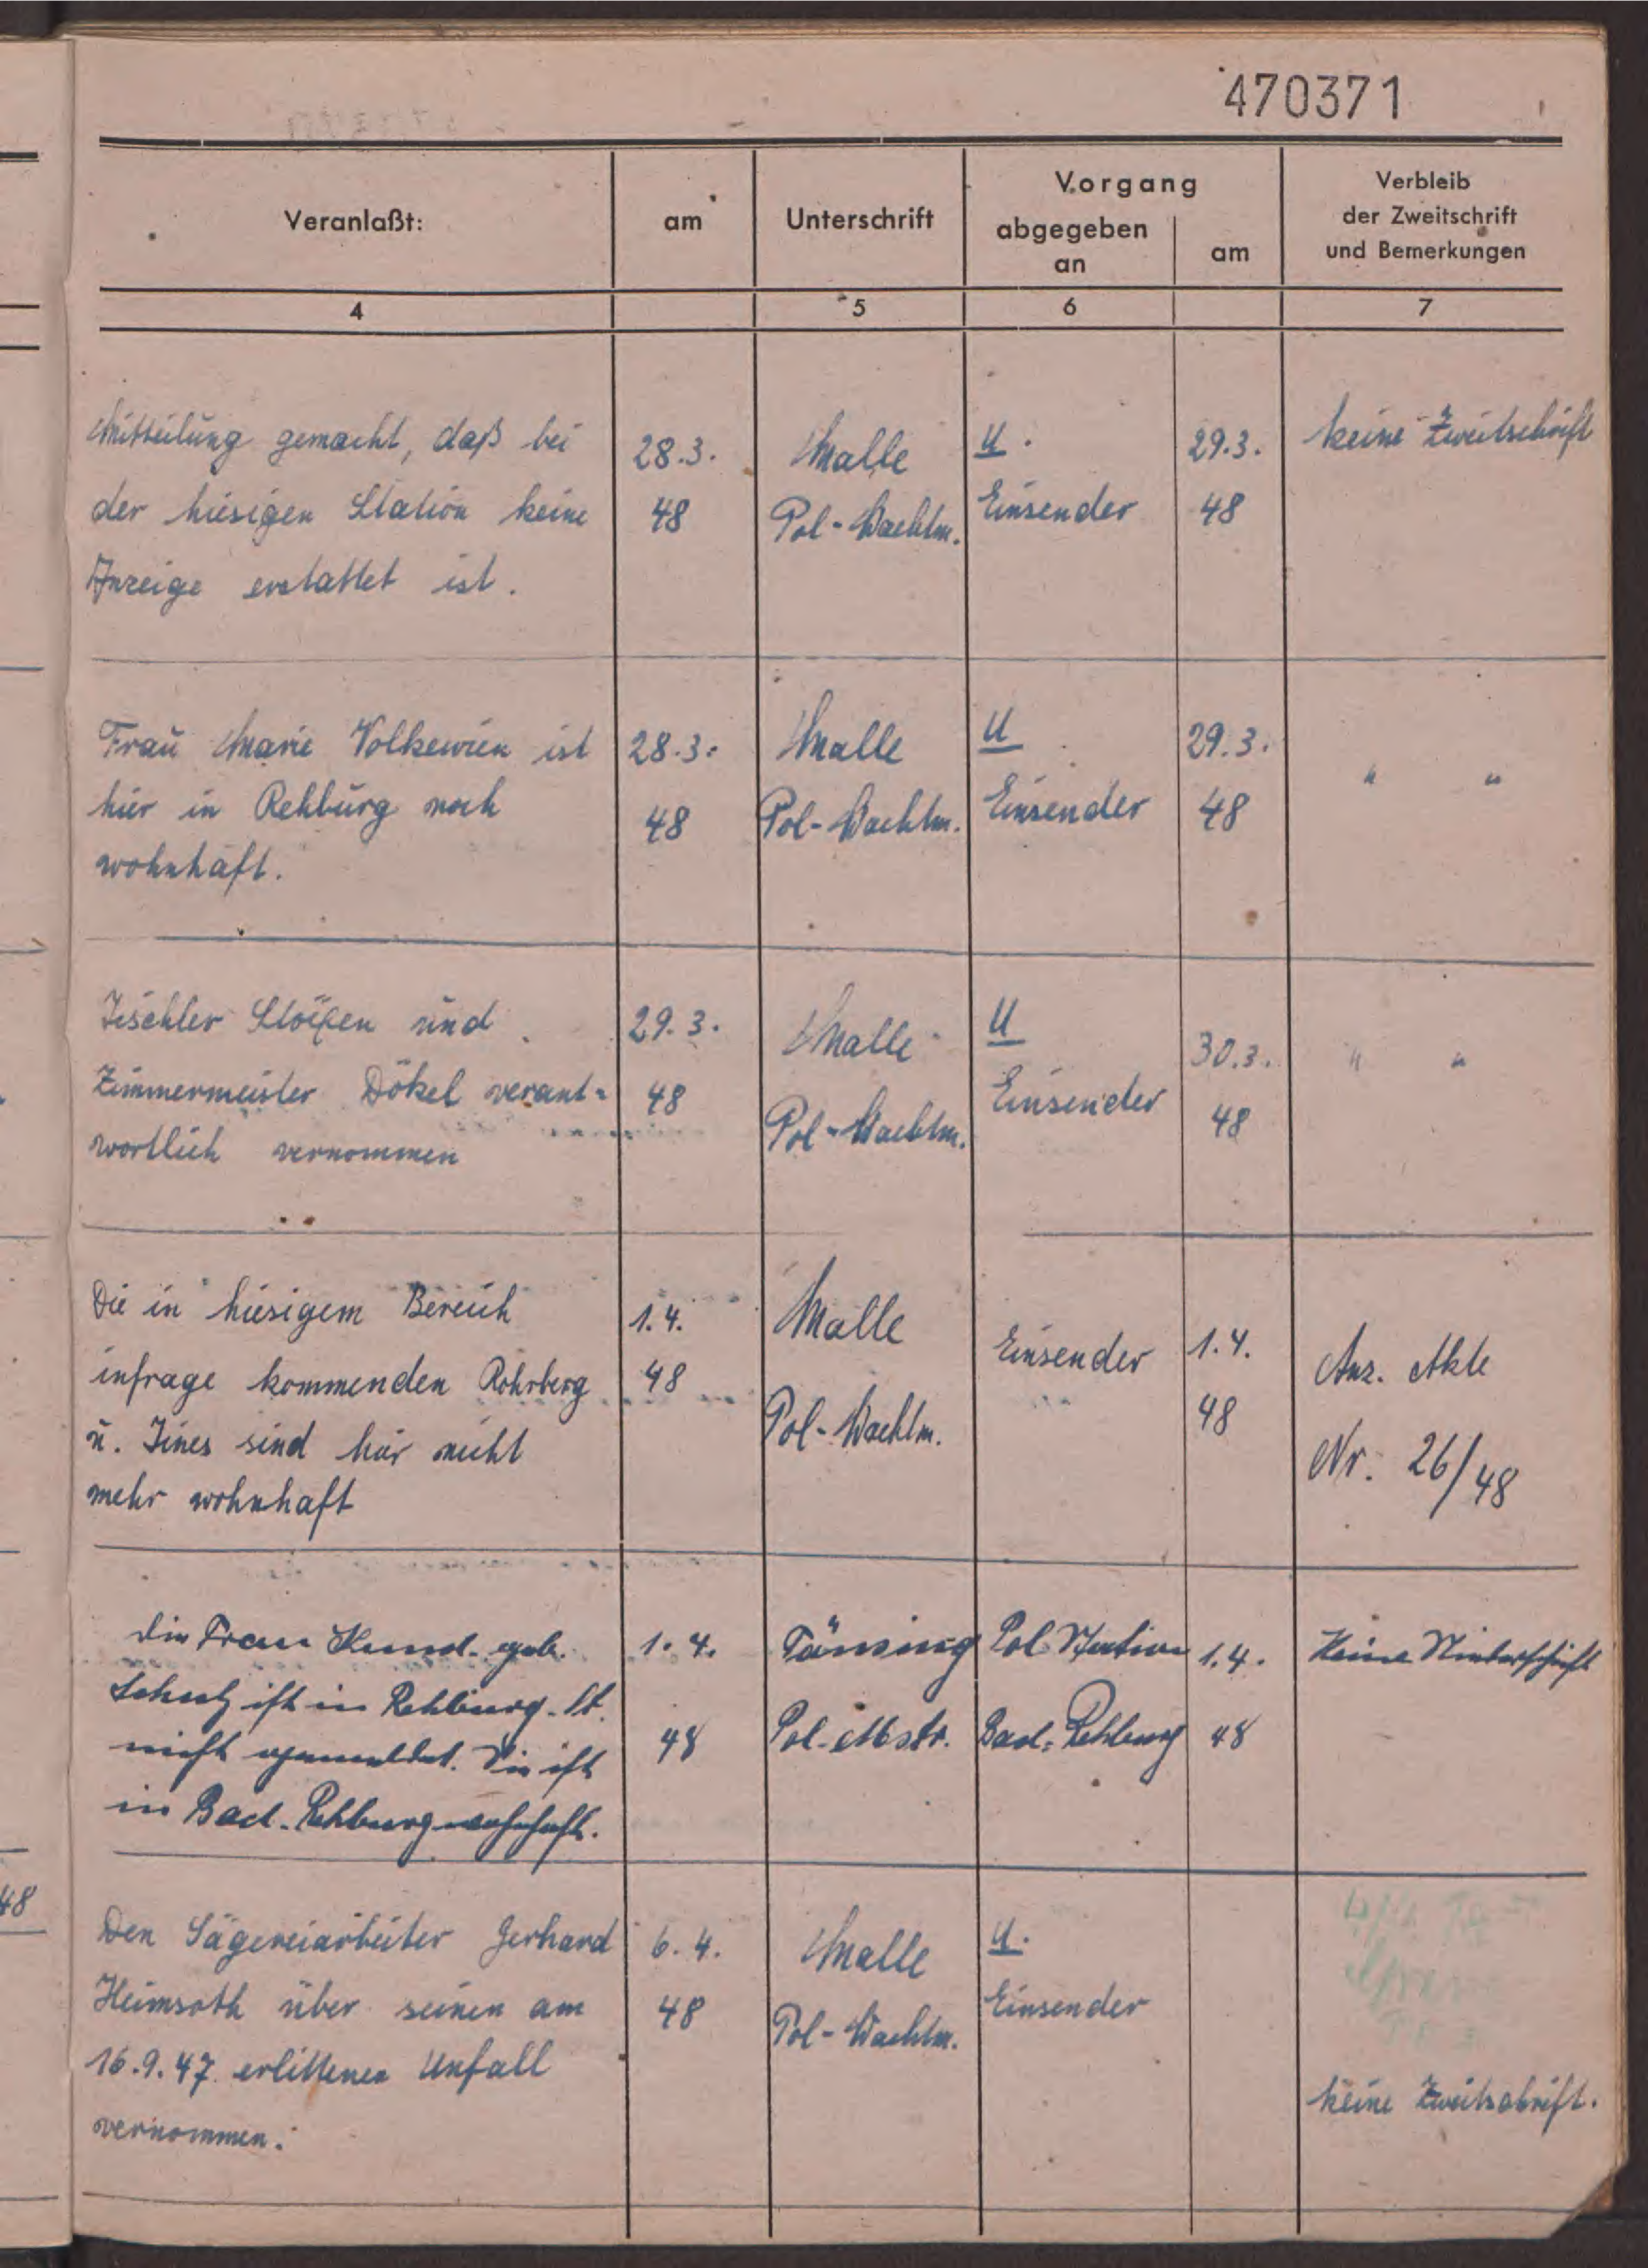 470371
Veranlaßt:
am
Unterschrift
Vorgang
abgegeben
an
am
Verbleib
der Zweitschrift
und Bemerkungen
4
5
6
7
Mitteilung gemacht, daß bei
der hiesigen Station keine
Anzeige erstattet ist.
28.3.
48
Malle
Pol-Wachtm.
U.
Einsender
29.3.
48
keine Zweitschrift
Frau Marie Volkewien ist
hier in Rehburg noch
wohnhaft.
28.3.
48
Malle
Pol-Wachtm.
U
Einsender
29.3.
48
" "
Tischler und
Zimmermeister Dökel verant-
wortlich vernommen
29.3.
48
Malle
Pol-Wachtm.
U
Einsender
30.3.
48
" "
Die in hiesigem Bereich
infrage kommenden Rohrberg
u. Tines sind hier nicht
mehr wohnhaft
1.4.
48
Malle
Pol-Wachtm.
Einsender
1.4.
48
Anz. Akte
Nr. 26/48
Die Frau geb.
Schulz ist in Rehburg-St.
nicht gemeldet. Sie ist
in Bad-Rehburg wohnhaft.
1.4.
48
Tänsing
Pol-Mstr.
Pol Station
Bad-Rehburg
1.4.
48
Keine
Den Sägereiarbeiter Gerhard
Heimsoth über seinen am
16.9.47 erlittenen Unfall
vernommen.
6.4.
48
Malle
Pol-Wachtm.
U.
Einsender
keine Zweitschrift.
48